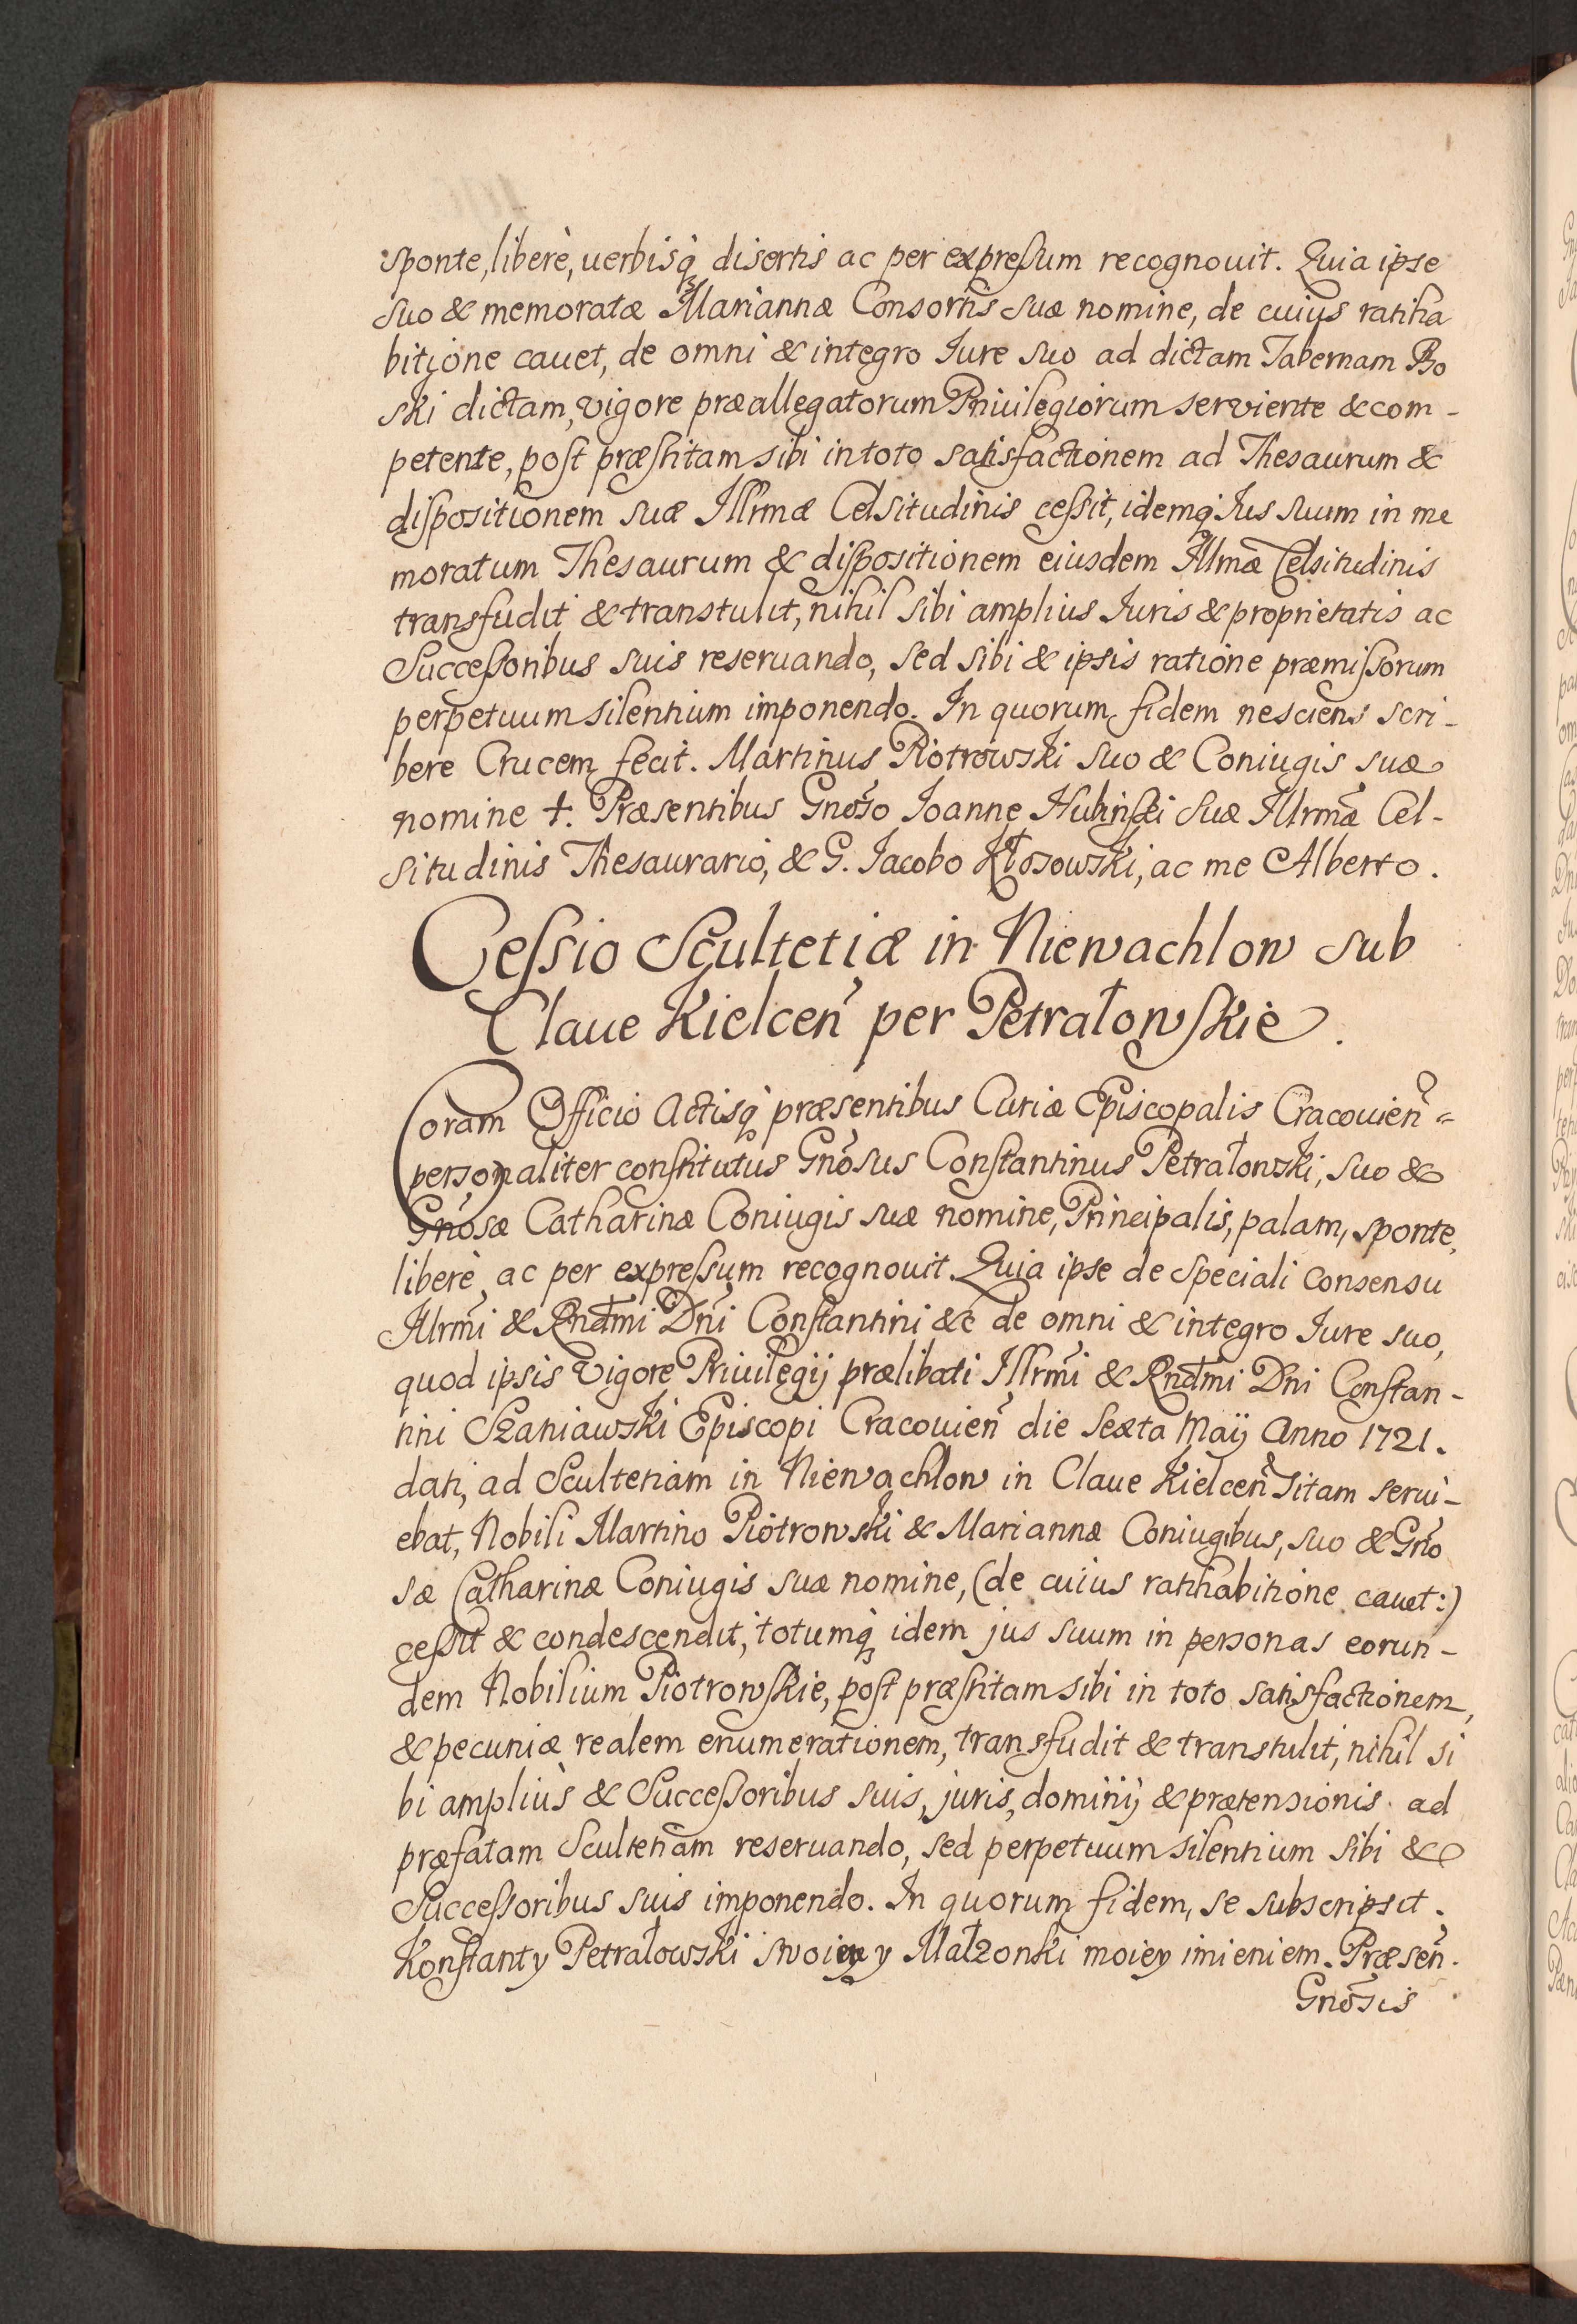 sponte, liberè, uerbisq́ disertis ac per expreſsum recognouit. Quia ipse
suo & memoratæ Mariannæ Consortis suæ nomine, de cuius ratiha
bitione cauet, de omni & integro Iure suo ad dictam Tabernam Bo
ski dictam, vigore præallegatorum Priuilegiorum serviente & com-
petente, poſt præſtitam sibi in toto satisfactionem ad Thesaurum &
diſpositionem suæ Illrmæ Celsitudinis ceſsit, idemq́ Ius suum in me
moratum Thesaurum & diſpositionem eiusdem Illmæ Celsitudinis
transfudit & transtulit, nihil sibi amplius Iuris & proprietatis ac
Succeſsoribus suis reseruando, sed sibi & ipsis ratione præmiſsorum
perpetuum silentium imponendo. In quorum fidem nesciens scri-
bere Crucem fecit. Martinus Piotrowski suo & Coniugis suæ
nomine +. Præsentibus Gnoso Ioanne Hulinſki suæ Illrmæ Cel-
situdinis Thesaurario, & G. Iacobo Kłosowski, ac me Alberto.
Ceſsio Scultetiæ in Niewachlow sub
Claue Kielceñ per Petrałowſkie.
Coram Officio Actisq́ præsentibus Curiæ Episcopalis Cracouieñ =
personaliter conſtitutus Gnõsus Conſtantinus Petrałowski, suo &
Gnõsæ Catharinæ Coniugis suæ nomine, Principalis, palam, sponte,
liberè, ac per expreſsum recognouit. Quia ipse de speciali consensu
Illrm̃i & Rnd̃mi Dñi Conſtantini &c de omni & integro Iure suo,
quod ipsis vigore Priuilegij prælibati Illrm̃i & Rnd̃mi Dni Conſtan-
tini Szaniawski Episcopi Cracouieñ die sexta Maij Anno 1721.
dati, ad Scultetiam in Niewachlow in Claue Kielceñ sitam serui-
ebat, Nobili Martino Piotrowski & Mariannæ Coniugibus, suo & Gño
sæ Catharinæ Coniugis suæ nomine, (de cuius ratihabitione cauet:)
ceſsit & condescendit, totumq́ idem jus suum in personas eorun-
dem Nobilium Piotrowſkie, poſt præſtitam sibi in toto satisfactionem,
& pecuniæ realem enumerationem, transfudit & transtulit, nihil si
bi ampliùs & Succeſsoribus suis, juris, dominij & prætensionis ad
præfatam Scultetiam reseruando, sed perpetuum silentium sibi &
Succeſsoribus suis imponendo. In quorum fidem, se subscripsit.
Konſtanty Petrałowski swoim y Małzonki moiey imieniem. Præseñ.
Gnõsis